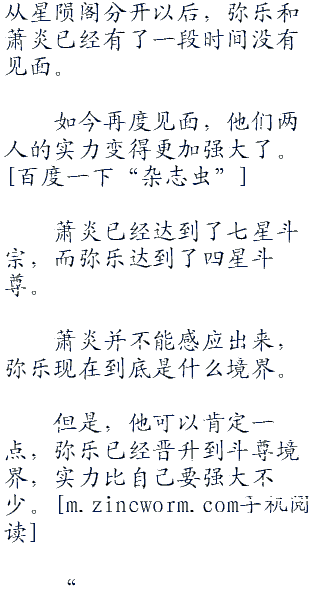 从星陨阁分开以后，弥乐和
萧炎已经有了一段时间没有
见面。
如今再度见面，他们两
人的实力变得更加强大了。
[百度一下“杂志虫”]
萧炎已经达到了七星斗
宗，而弥乐达到了四星斗
尊。
萧炎并不能感应出来，
弥乐现在到底是什么境界。
但是，他可以肯定一
点，弥乐已经晋升到斗尊境
界，实力比自己要强大不
少。[m.zincworm.com手机阅
读]
“